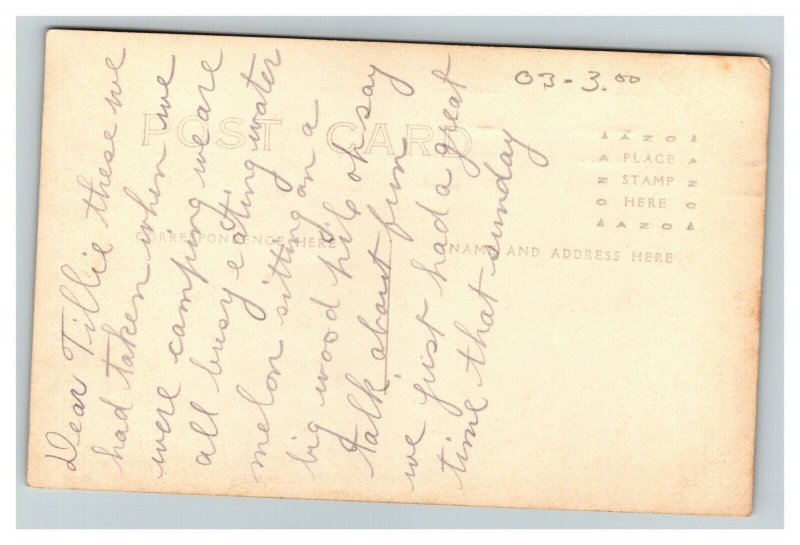 03-3.00
POST CARD
AZO
PLACE
STAMP
HERE
AZO
CORRESPONDENCE HERE
NAME AND ADDRESS HERE
Dear Tillie these we
had taken when we
were camping we are
all busy eating water
melon sitting on a
big wood pile oh say
talk about fun
we just had a great
time that sunday